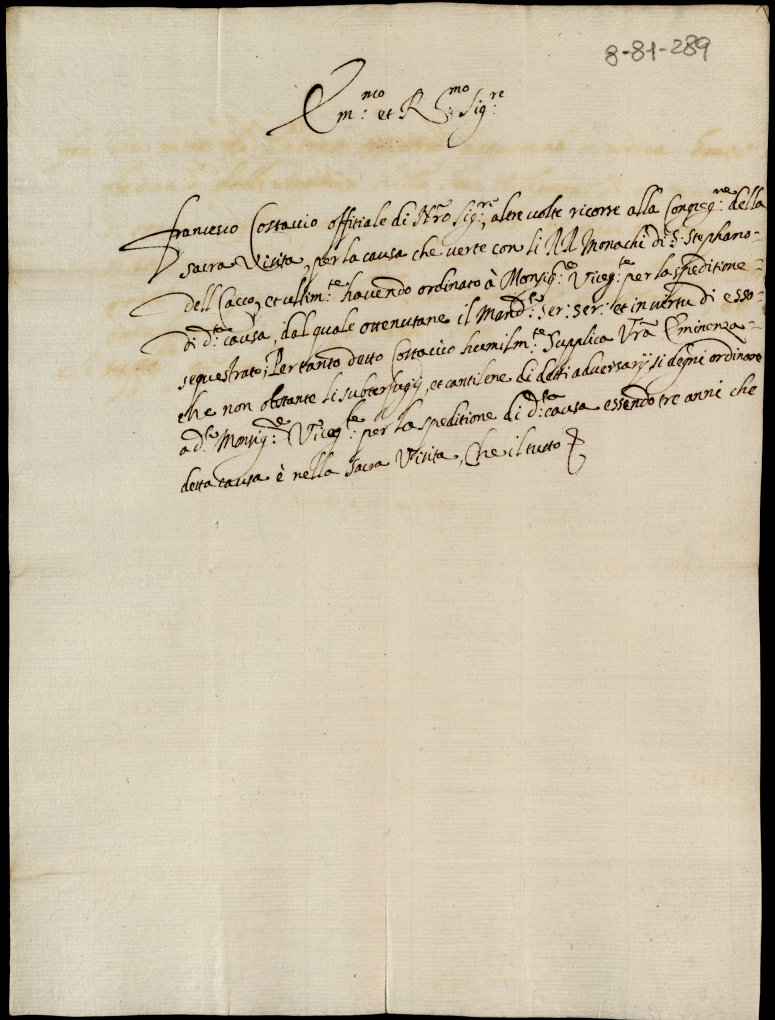 8-81-289
Em.nco et R.mo Sig.re
Francesco Costaccio offitiale di Nro Sig.re, altre volte ricorse alla Congreg.ne della
sacra Visita, per la causa che verte con li RR Monachi di S. Stephano-
dell Cacco, et ultim.te havendo ordinato à Monsig.e Viceg.te per la speditione-
di d.ta causa, dal quale ottenutane il Mand.to ser: ser: et in vertu di esso-
sequestrato; Pertanto detto Costaccio humilm.te supplica Vra Eminenza-
che non obstante li subterfugij, et cantilene di detti adversarij si degni ordinare
a d.to Monsig.e Viceg.te per la speditione di d.ta causa essendo tre anni che
detta causa è nella Sacra Visita, Che il tutto